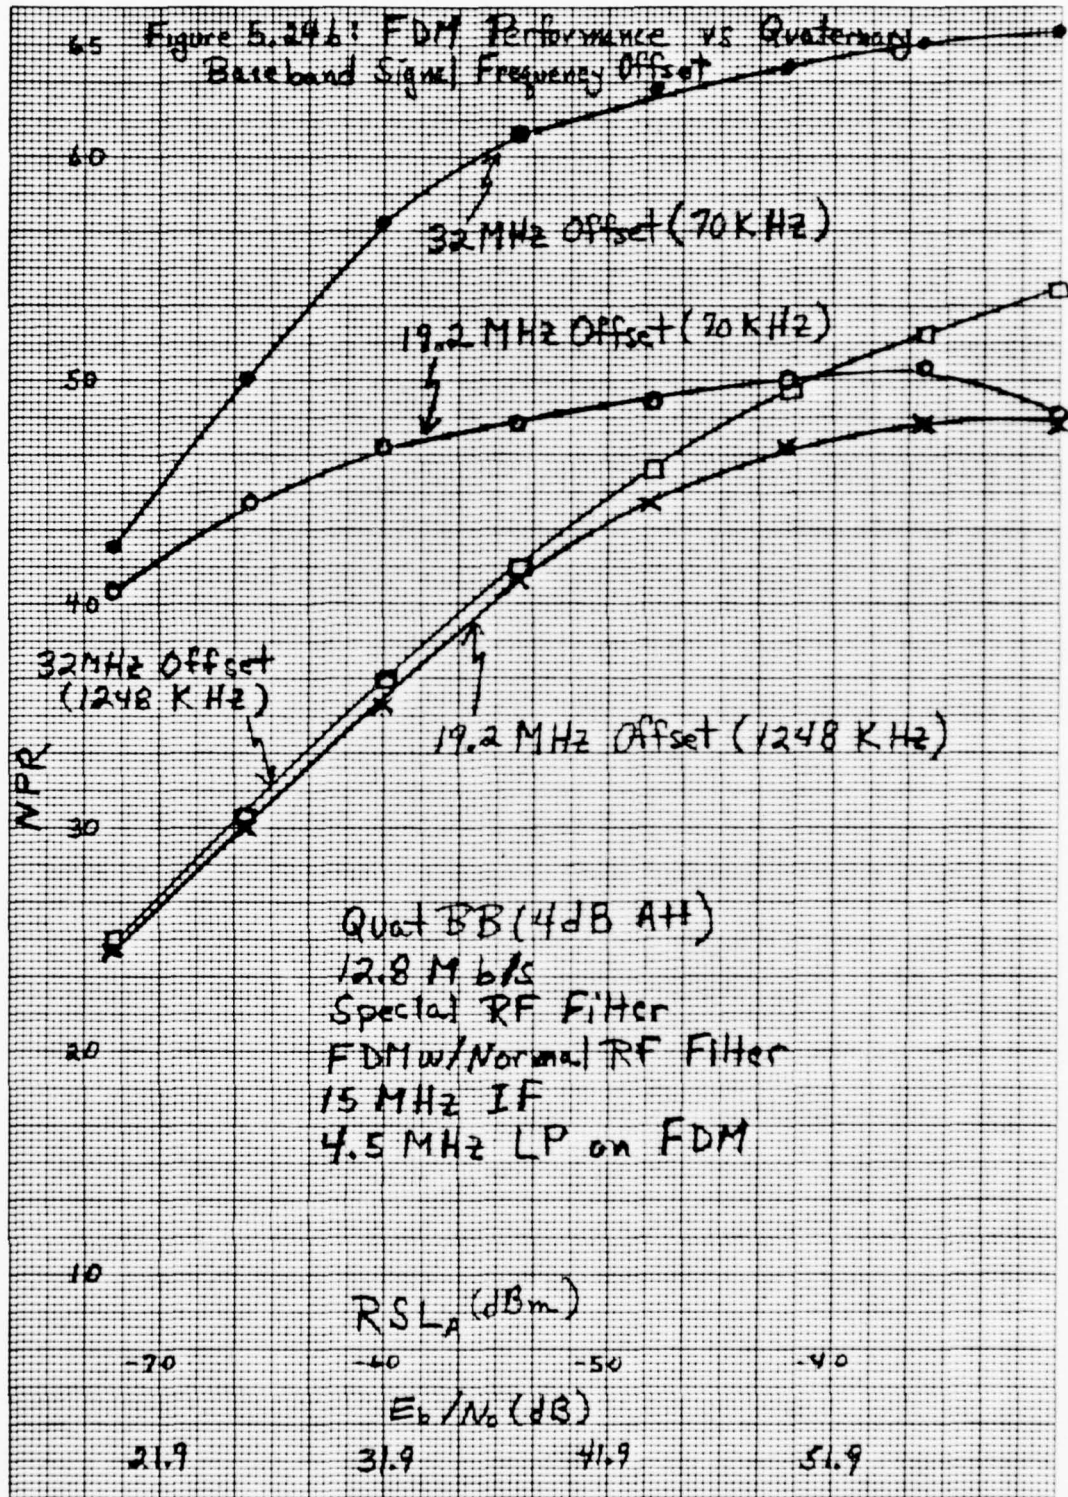 65
Figure 5.24b: FDM Performance vs Quaternary
Baseband Signal Frequency Offset
60
32 MHz Offset (70 KHz)
19.2 MHz Offset (70 KHz)
50
40
32 MHz Offset
(1248 KHz)
19.2 MHz Offset (1248 KHz)
NPR
30
Quat BB (4dB Att)
12.8 M b/s
Special RF Filter
FDM w/Normal RF Filter
20
15 MHz IF
4.5 MHz LP on FDM
10
RSL_A (dBm)
-70 -60 -50 -40
Eb/No (dB)
21.9 31.9 41.9 51.9